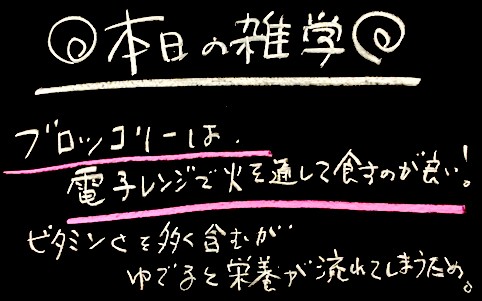 本日の雑学
ブロッコリーは、
電子レンジで火を通して食すのが良い!
ビタミンCを多く含むが
ゆでると栄養が流れてしまうため。